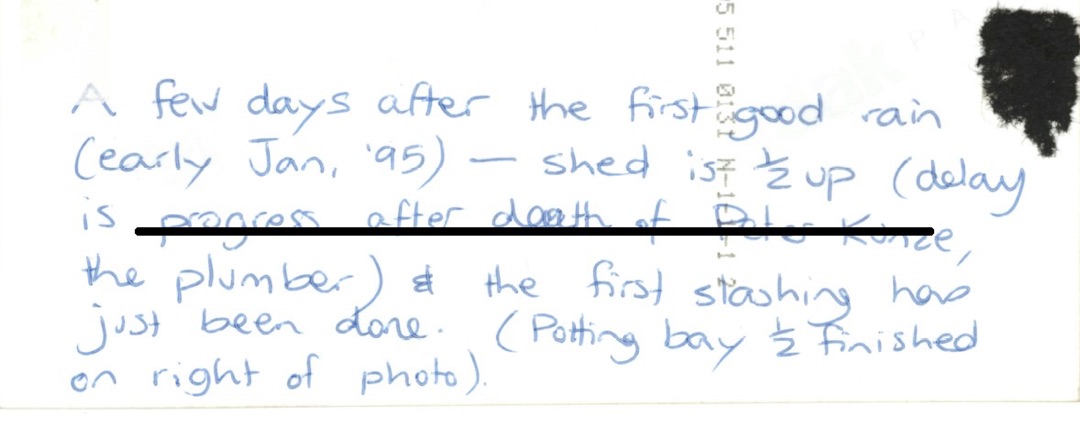 A few days after the first good rain
(early Jan, '95) — shed is ½ up (delay
is progress after death of Peter Kunze,
the plumber) & the first slashing has
just been done. (Potting bay ½ finished
on right of photo).
511 0131